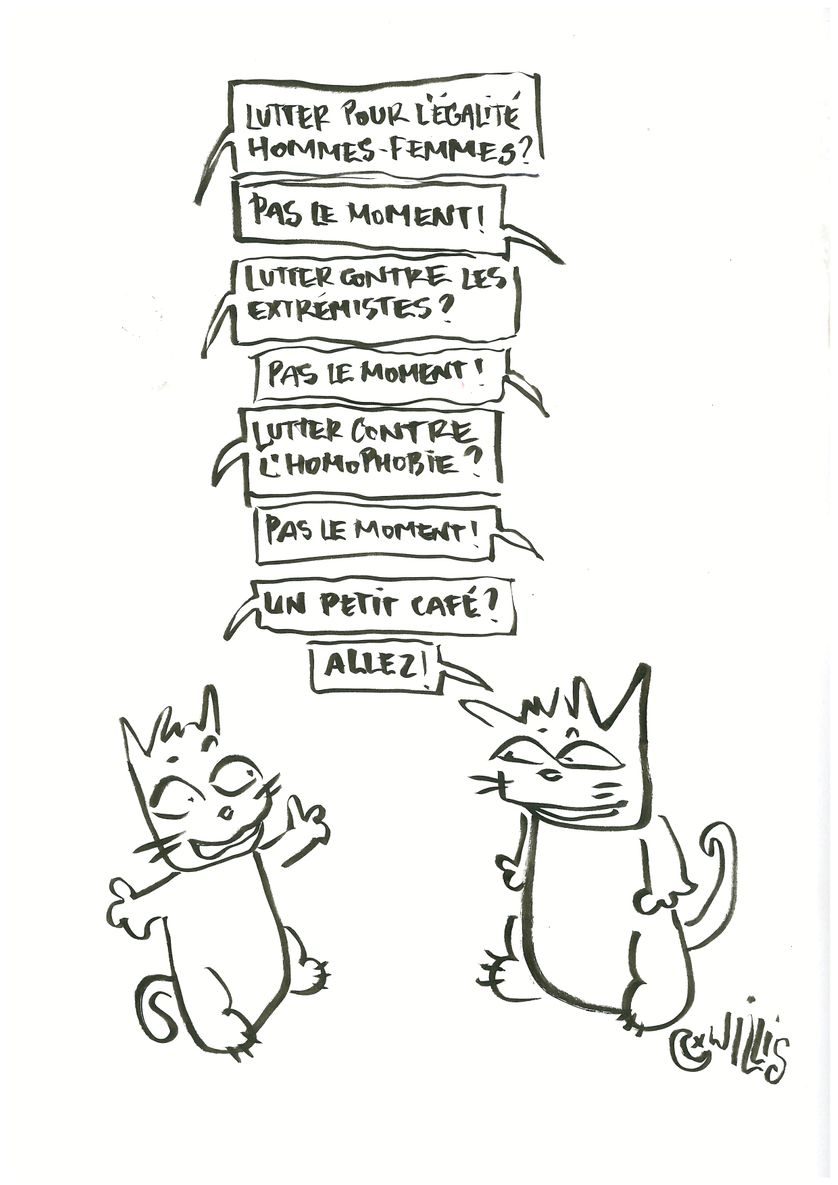 LUTTER POUR L'ÉGALITÉ
HOMMES-FEMMES?
PAS LE MOMENT!
LUTTER CONTRE LES
EXTRÉMISTES?
PAS LE MOMENT!
LUTTER CONTRE
L'HOMOPHOBIE?
PAS LE MOMENT!
UN PETIT CAFÉ?
ALLEZ!
WILLIS